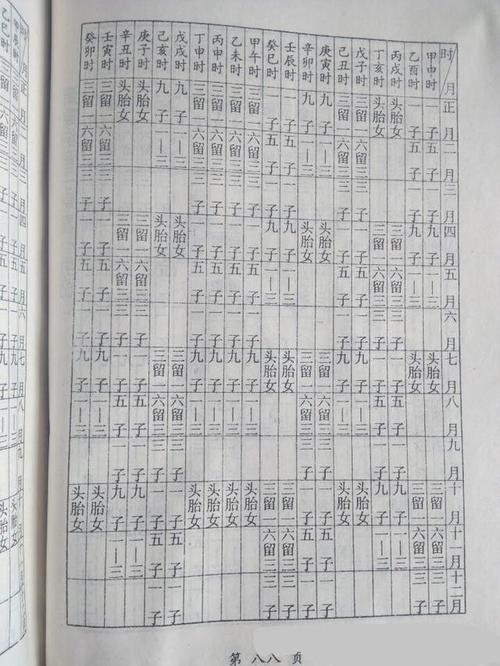 时/月 正月 二月 三月 四月 五月 六月 七月 八月 九月 十月 十一月 十二月
甲申时 一子 五子 一子 九子 一三 头胎女 三留一 六留三 三子
乙酉时 一子 五子 一子 九子 一三 头胎女 三留一 六留三 三子
丙戌时 头胎女 三留一 六留三 三子 一子 五子 一子 九子 一三
丁亥时 头胎女 三留一 六留三 三子 一子 五子 一子 九子 一三
戊子时 三留一 六留三 三子 一子 五子 一子 九子 一三 头胎女
己丑时 三留一 六留三 三子 一子 五子 一子 九子 一三 头胎女
庚寅时 九子 一三 头胎女 三留一 六留三 三子 一子 五子 一子
辛卯时 九子 一三 头胎女 三留一 六留三 三子 一子 五子 一子
壬辰时 一子 五子 一子 九子 一三 头胎女 三留一 六留三 三子
癸巳时 一子 五子 一子 九子 一三 头胎女 三留一 六留三 三子
甲午时 三留一 六留三 三子 一子 五子 一子 九子 一三 头胎女
乙未时 三留一 六留三 三子 一子 五子 一子 九子 一三 头胎女
丙申时 三留一 六留三 三子 一子 五子 一子 九子 一三 头胎女
丁申时 三留一 六留三 三子 一子 五子 一子 九子 一三 头胎女
戊戌时 九子 一三 头胎女 三留一 六留三 三子 一子 五子 一子
己亥时 九子 一三 头胎女 三留一 六留三 三子 一子 五子 一子
庚子时 头胎女 三留一 六留三 三子 一子 五子 一子 九子 一三
辛丑时 头胎女 三留一 六留三 三子 一子 五子 一子 九子 一三
壬寅时 三留一 六留三 三子 一子 五子 一子 九子 一三 头胎女
癸卯时 三留一 六留三 三子 一子 五子 一子 九子 一三 头胎女
第 八八 页